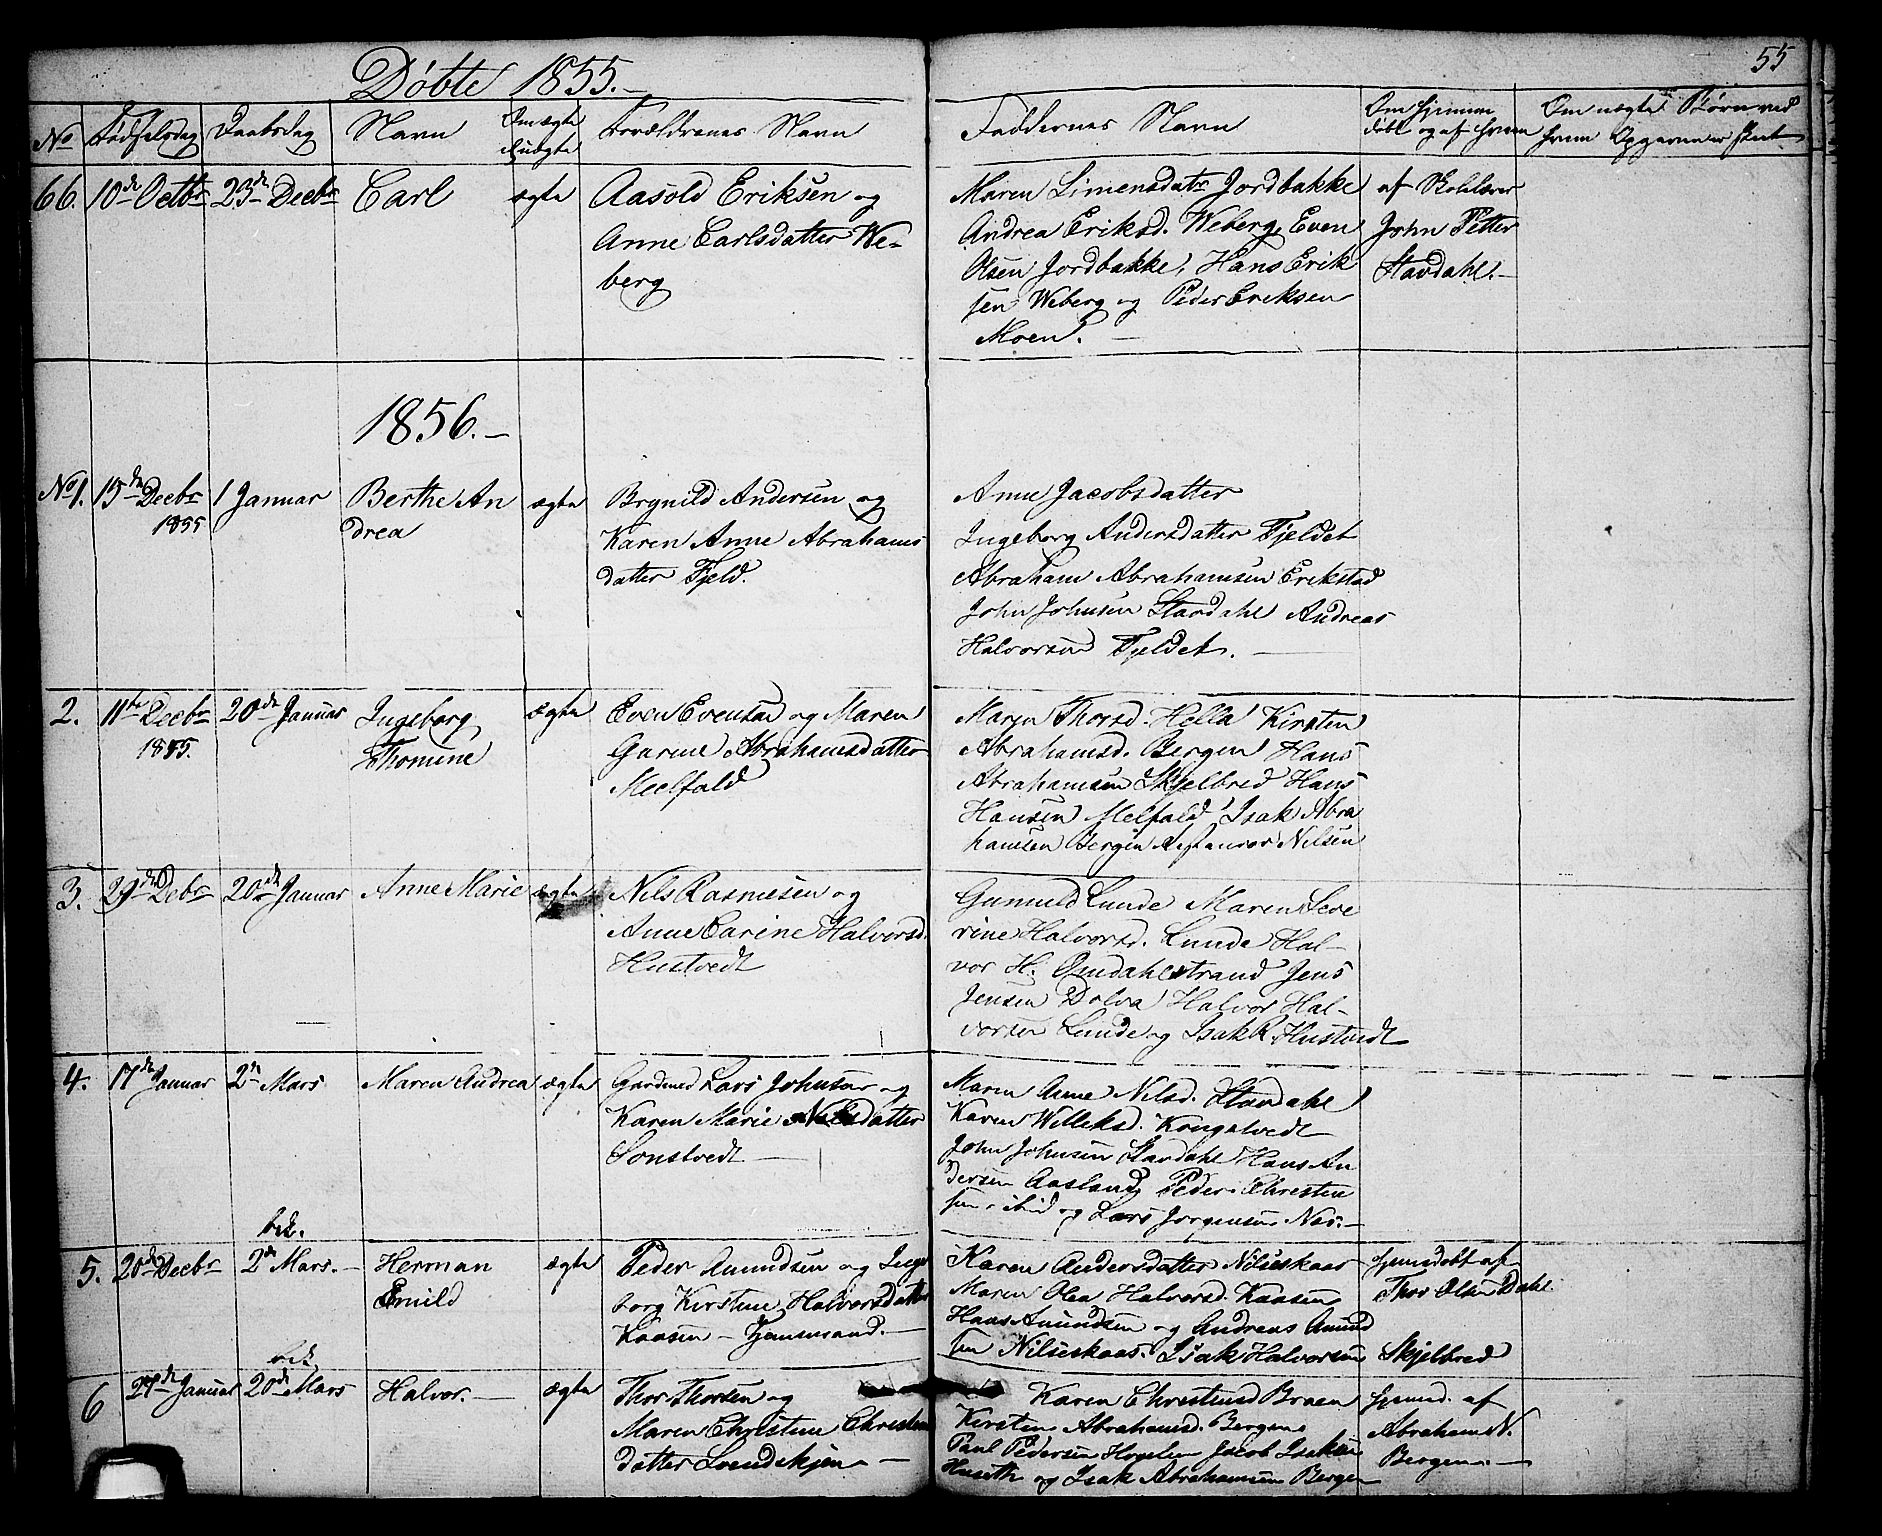 55
Döbte 1855.
No Födselsdag Daabsdag Navn Om ægte Forældrenes Navn Faddernes Navn Om hjemme Om uægte Børn ved
uægte döbt og af hvem hvem Opgaven er skeet
66. 10de Octbr 23de Decbr Carl ægte Aasold Eriksen og
Anne Carlsdatter We-
berg
Maren Simensdatr Jordbakke
Andrea Eriksd. Weberg, Even
Olsen Jordbakke, Hans Erik
sen Weberg og Peder Eriksen
Moen.
af Skolelærer
John Petter
Stavdahl.
1856.
No 1. 15de Decbr 1 Januar Berthe An ægte Brynild Andersen og
1855 drea Karen Anne Abrahams
datter Fjeld.
Anne Jacobsdatter
Ingeborg Andersdatter Fjeldet
Abraham Abrahamsen Erikstad
John Johnsen Stavdahl Andreas
Halvorsen Fjeldet.
2. 11te Decbr 20de Januar Ingeborg ægte Even Evensen og Maren
1855. Thomine Gurine Abrahamsdatter
Meelfald
Maren Thorsd. Hella Kirsten
Abrahamsd. Bergen Hans
Abrahamsen Skjelbred Hans
Hansen Melfald Isak Abra
hamsen Bergen Nilsen
3. 29de Debr 20de Januar Anne Marie ægte Nils Rasmusen og
Anne Carine Halvorsd.
Hustvedt
Gunuld Lunde Maren Seve
rine Halvorsd. Lunde Hal-
vor H. Omdahlstrand Jens
Jensen Dolva Halvor Hal-
vorsen Lunde og Isak R. Hustvedt
4. 17de Januar 2n Mars Maren Andrea ægte Gardmd Lars Johnsen og
Karen Marie Nilsdatter
Sonstvedt
Maren Anne Nilsd. Stavdahl
Karen Willeksd. Kongstvedt
John Johnsen Stavdahl Hans An
dersen Aasland, Peder Christen
sen ibid og Lars Jörgensen Nes.
bek.
5. 20de Decbr 2de Mars. Herman ægte Peder Amundsen og Inge
Emild borg Kirstine Halvorsdatter
Kaasen - Tjonsrand.
Karen Andersdatter Nilseskaas
Maren Olea Halvorsd. Kaasen
Hans Amundsen og Andreas Amund
sen Nilseskaas. Isak Halvorsen Skjelbred
hjemedöbt af
Thor Olsen Dahl.
bek.
6 27de Januar 20de Mars Halvor. ægte Thor Thorsen og
Maren Christine Christens
datter Svendskjön
Karen Christensd Braaen
Kirsten Abrahamsd. Bergen
Paul Pedersen Jacob Isaksen
Huseth og Isak Abrahamsen Bergen
hjemd. af
Abraham N.
Bergen.